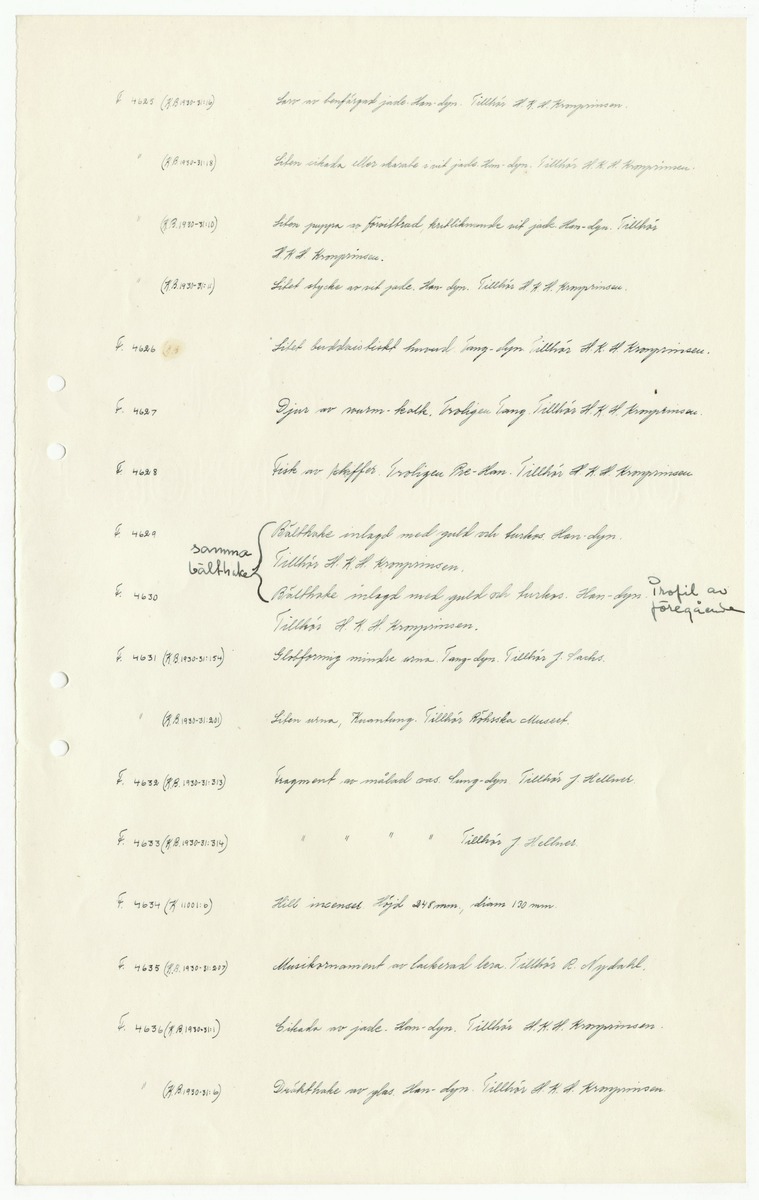 F. 4625 (K.B. 1930-31:16) Larv av benfärgad jade. Han-dyn. Tillhör H.K.H. Kronprinsen.
" (K.B. 1930-31:18) Liten cikada eller skarabé i vit jade. Han-dyn. Tillhör H.K.H. Kronprinsen.
" (K.B. 1930-31:10) Liten puppa av förvittrad, kritliknande vit jade. Han-dyn. Tillhör
H.K.H. Kronprinsen.
" (K.B. 1930-31:11) Litet stycke av vit jade. Han-dyn. Tillhör H.K.H. Kronprinsen.
F. 4626 Litet buddaistiskt huvud Tang-dyn Tillhör H.K.H. Kronprinsen.
F. 4627 Djur av wurm-kalk. Troligen Tang. Tillhör H.K.H. Kronprinsen.
F. 4628 Fisk av skiffer. Troligen Pre-Han. Tillhör H.K.H. Kronprinsen
F. 4629 Bälthake inlagd med guld och turkos. Han-dyn.
samma
Tillhör H.K.H. Kronprinsen.
bälthake
F. 4630 Bälthake inlagd med guld och turkos. Han-dyn. Profil av
föregående
Tillhör H.K.H. Kronprinsen.
F. 4631 (K.B. 1930-31:154) Globformig mindre urna. Tang-dyn. Tillhör J. Sachs.
" (K.B. 1930-31:201) Liten urna, Kuantung. Tillhör Röhsska Museet.
F. 4632 (K.B. 1930-31:313) Fragment av målad vas. Sung-dyn Tillhör J Hellner.
F. 4633 (K.B. 1930-31:314) " " " " Tillhör J Hellner.
F. 4634 (K 11001:6) Hill incenser Höjd 248 mm, diam 170 mm.
F. 4635 (K.B. 1930-31:207) Musikornament av lackerad lera. Tillhör R. Nydahl.
F. 4636 (K.B. 1930-31:1) Cikada av jade. Han-dyn. Tillhör H.K.H. Kronprinsen.
" (K.B. 1930-31:6) Dräkthake av glas. Han-dyn. Tillhör H.K.H. Kronprinsen